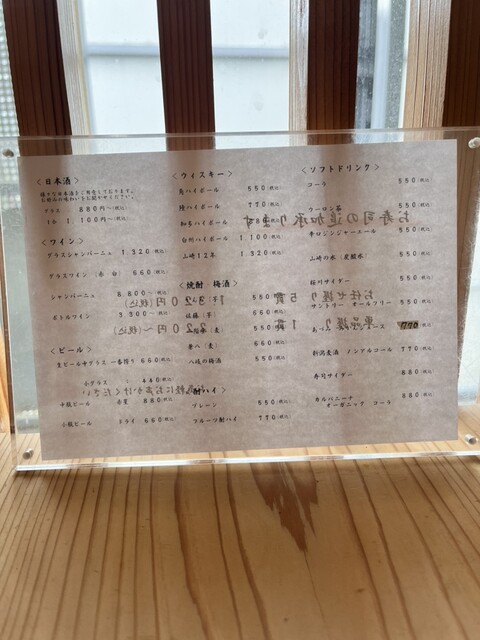 <日本酒>
様々な日本酒をご用意しております。
グラス 880円~(税込)
1合 1,100円~(税込)
<ワイン>
グラスシャンパーニュ 1,320(税込)
グラスワイン (赤 白) 660(税込)
シャンパーニュ 8,800~(税込)
ボトルワイン 3,300~(税込)
<ビール>
生ビール中グラス 一番搾り 660(税込)
小グラス 440(税込)
中瓶ビール 赤星 880(税込)
小瓶ビール ドライ 660(税込)
<ウィスキー>
角ハイボール 550(税込)
陸ハイボール 770(税込)
知多ハイボール 880(税込)
白州ハイボール 1,100(税込)
山崎12年 1,320(税込)
<焼酎 梅酒>
550(税込)
佐藤(芋) 660(税込)
(麦) 550(税込)
兼八(麦) 660(税込)
八岐の梅酒 550(税込)
酎ハイ>
プレーン 550(税込)
フルーツ酎ハイ 770(税込)
<ソフトドリンク>
コーラ 550(税込)
ウーロン茶 550(税込)
辛口ジンジャーエール 550(税込)
山崎の水(炭酸水) 550(税込)
桜川サイダー 550(税込)
サントリー オールフリー 550(税込)
ジュース 770(税込)
新潟麦酒 ノンアルコール 770(税込)
寿司サイダー 880(税込)
カルバニーナ
オーガニック コーラ 880(税込)
お寿司の追加承ります
お任せ握り5貫 1,320円(税込)
1貫 320円~(税込)
お声がけください